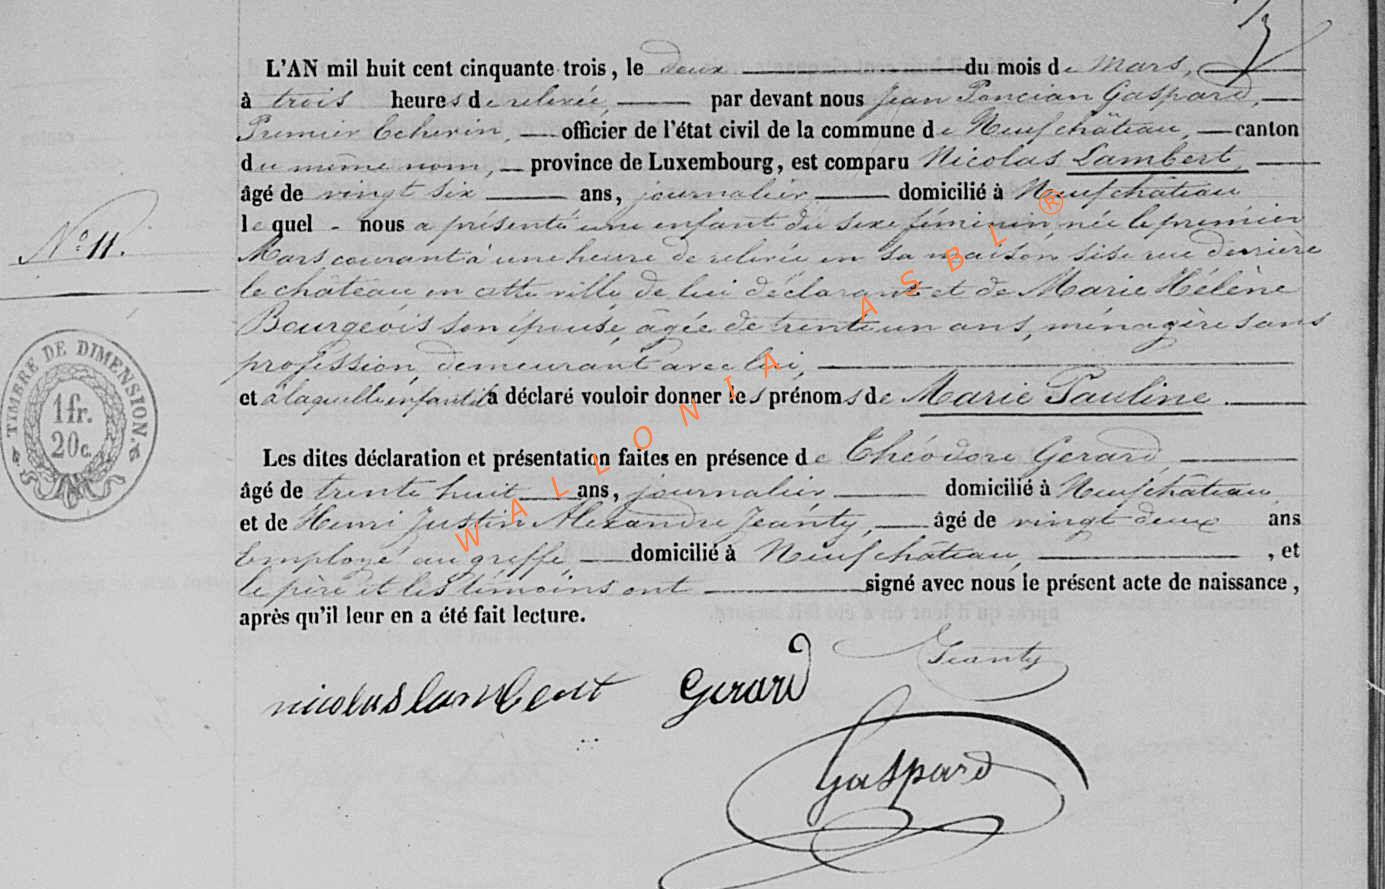 L'AN mil huit cent cinquante trois, le deux du mois de Mars,
à trois heures de relevée, par devant nous Jean Poncian Gaspard,
Premier Echevin, officier de l'état civil de la commune de Neufchâteau, canton
du même nom, province de Luxembourg, est comparu Nicolas Lambert,
âgé de vingt six ans, journalier domicilié à Neufchâteau
lequel nous a présenté une enfant du sexe féminin, née le premier
Mars courant à une heure de relevée en sa maison sise rue derrière
le château en cette ville de lui déclarant et de Marie Hélène
Bourgeois son épouse, âgée de trente un ans, ménagère sans
profession demeurant avec lui,
et à laquelle enfant il a déclaré vouloir donner les prénoms de Marie Pauline.
N° 11.
TIMBRE DE DIMENSION.
1 fr.
20 c.
Les dites déclaration et présentation faites en présence de Théodore Gerard,
âgé de trente huit ans, journalier domicilié à Neufchâteau,
et de Henri Justin Alexandre Jeanty, âgé de vingt deux ans
Employé au greffe domicilié à Neufchâteau, , et
le père et les témoins ont signé avec nous le présent acte de naissance,
après qu'il leur en a été fait lecture.
nicolas lambert Gerard Jeanty
Gaspard
WALLONIA ASBL ®